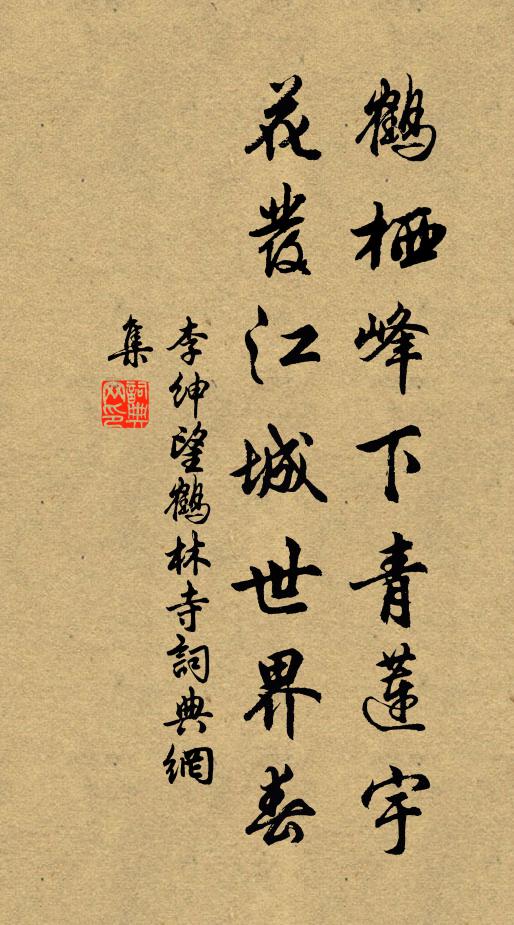 鶴栖峰下青蓮宇
花發江城世界春
李紳望鶴林寺詞典網
集
詞典網印